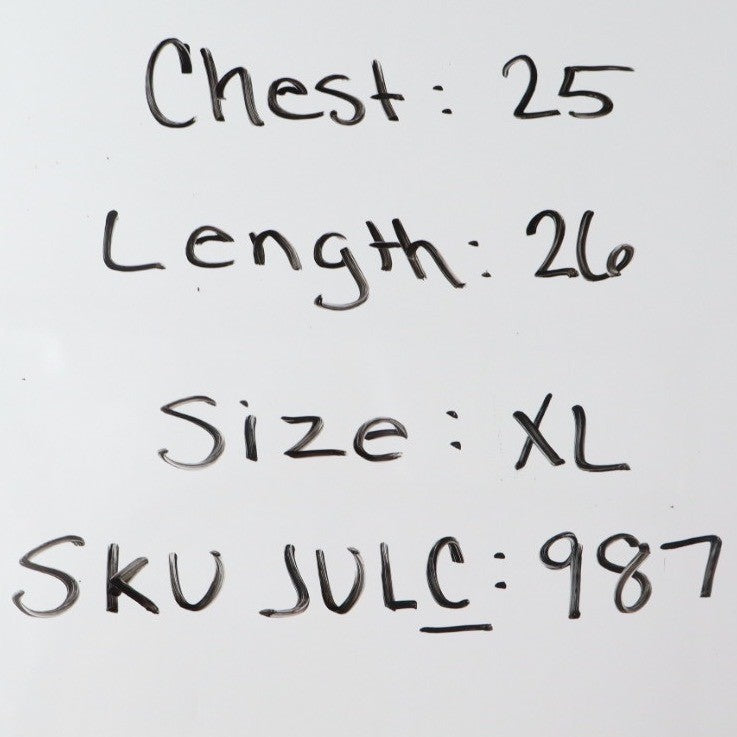 Chest: 25
Length: 26
Size: XL
SKU JULC: 987